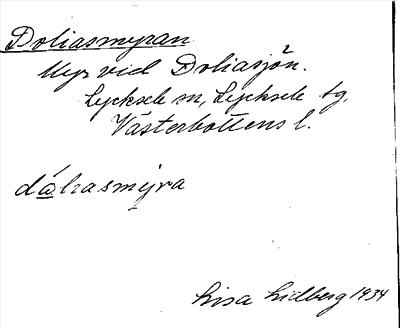 Doliasmyran
Myr vid Doliasjön.
Lycksele sn, Lycksele tg,
Västerbottens l.
Lisa Lidberg 1934